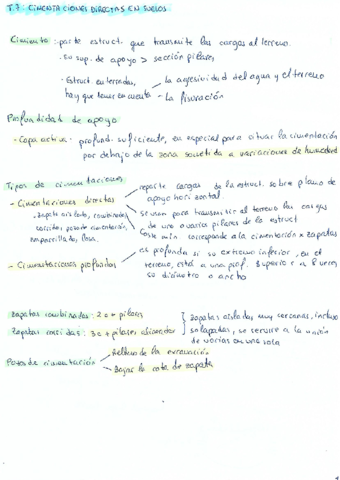 T.7: CIMENTACIONES DIRECTAS EN SUELOS
Cimiento: parte estruct. que transmite las cargas al terreno.
su sup. de apoyo > sección pilares
Estruct enterradas, hay que tener en cuenta
La agresividad del agua y el terreno
La fisuración
Profundidad de apoyo
- Capa activa: profund. suficiente, en especial para situar la cimentación
por debajo de la zona sometida a variaciones de humedad
Tipos de cimentaciones
- Cimentaciones directas
- Zapata aislada, combinada,
corrida, pozo de cimentación,
emparrillado, losa.
reparte cargas de la estruct. sobre plano de
apoyo horizontal
se usan para transmitir al terreno las cargas
de uno o varios pilares de la estruct
Coste mín corresponde a la cimentación x zapatas
- Cimentaciones profundas
es profunda si su extremo inferior, en el
terreno, está a una prof. superior a 8 veces
su diámetro o ancho
Zapatas combinadas: 2 o + pilares
Zapatas corridas: 3 o + pilares alineados
Zapatas aisladas muy cercanas, incluso
solapadas, se recurre a la unión
de varias en una sola
Pozos de cimentación
Relleno de la excavación
Bajar la cota de zapata